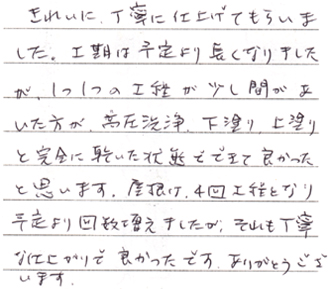 きれいに、丁寧に仕上げてもらいま
した。工期は予定より長くなりました
が、1つ1つの工程が少し間があ
いた方が、高圧洗浄、下塗り、上塗り
と完全に乾いた状態でできて良かった
と思います。屋根は、4回工程となり
予定より回数増えましたが、それも丁寧
な仕上がりで良かったです。ありがとうござ
います。